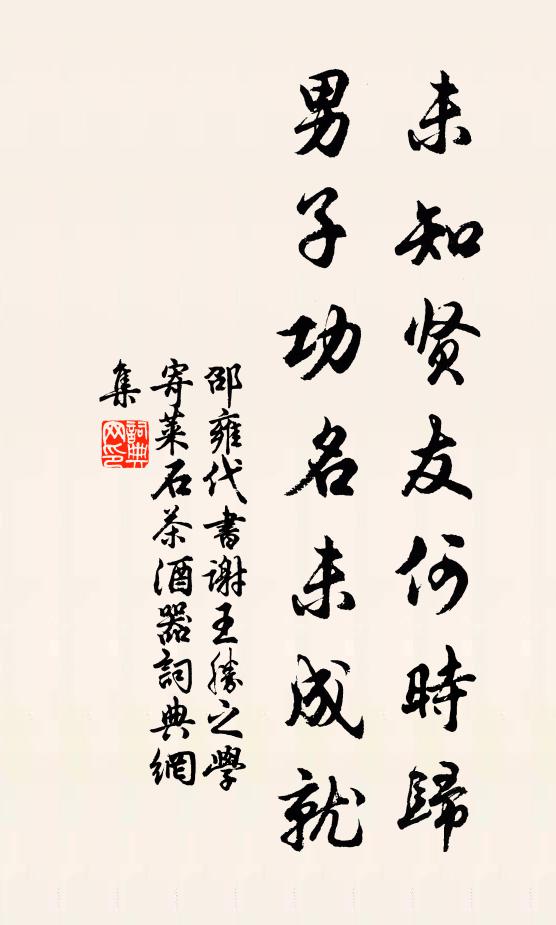 未知贤友何時歸
男子功名未成就
邵雍代書谢王勝之學
寄莱石茶酒器詞典網
集
詞典
网印